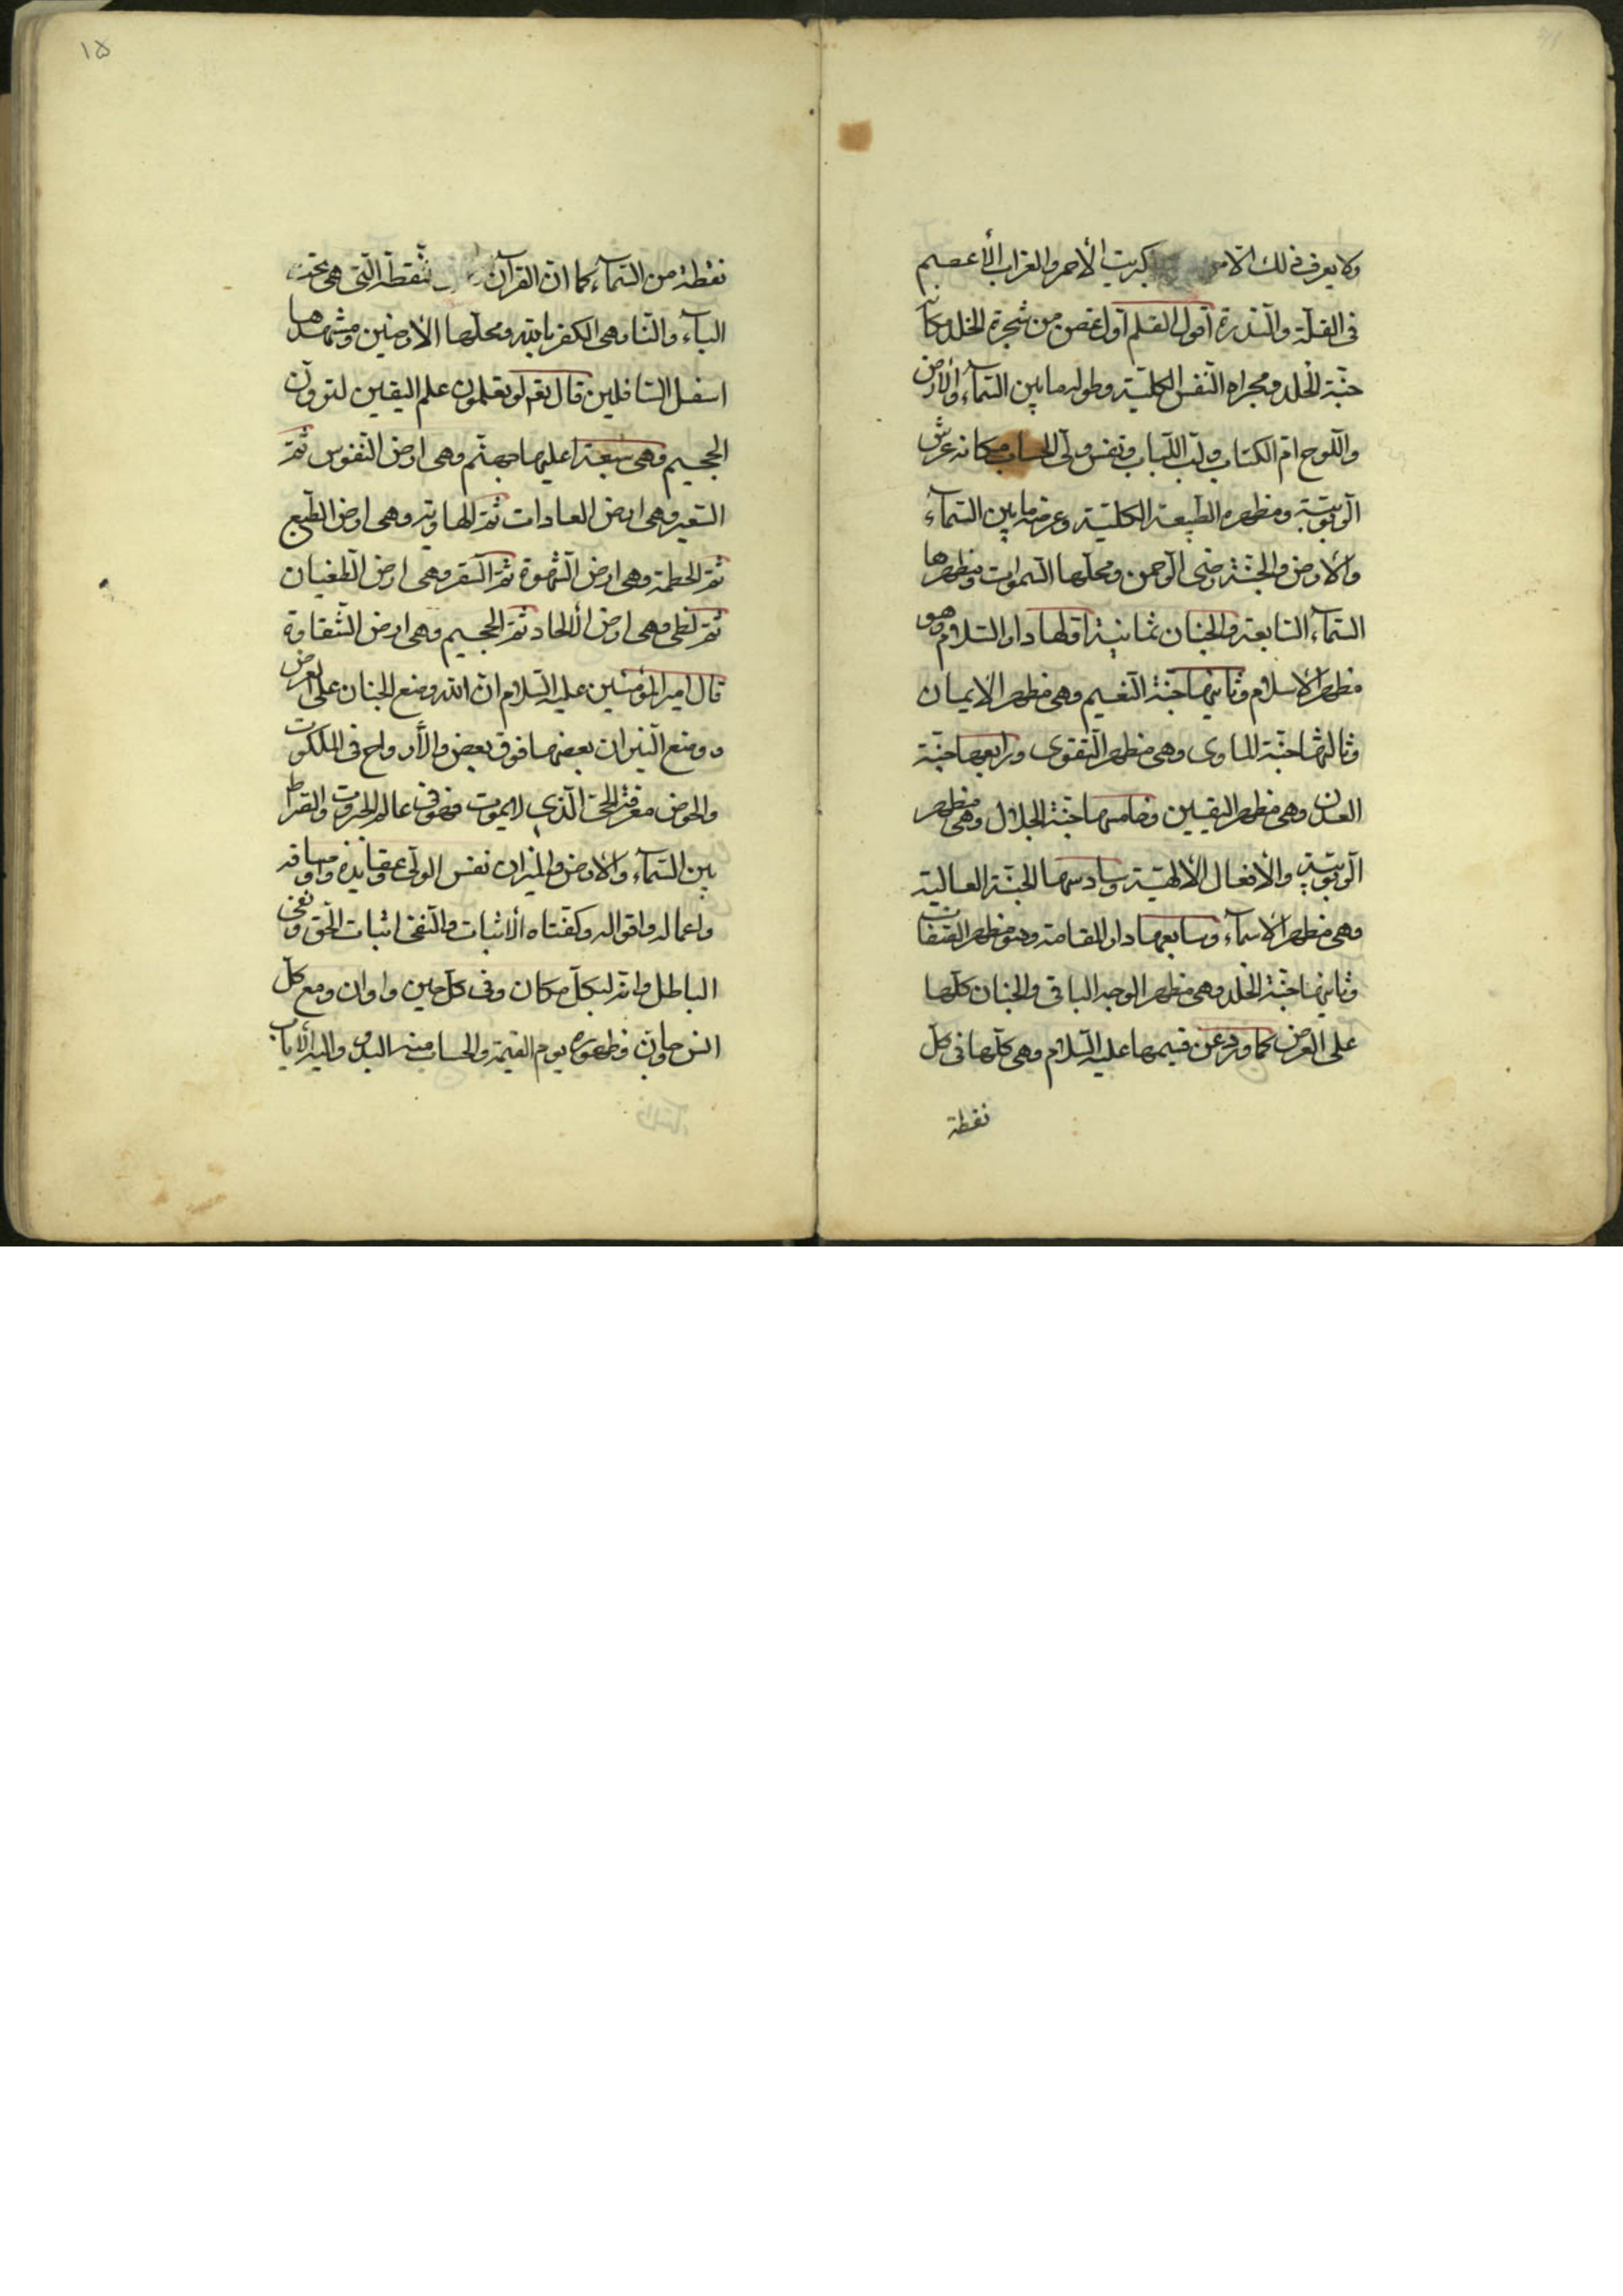 ولا يعرف ذلك الا من كبريت الأحمر والغراب الأعصم
فى القلّة والنّدرة أقول القلم أول غصن من شجرة الخلد مكانه
جنّة الخلد ومجراه النّفس الكليّة وطوله ما بين السّمآء والأرض
واللّوح امّ الكتاب ولبّ اللّباب ونفس ولىّ الحساب مكانه عرش
الرّبوبيّة ومظهره الطّبيعة الكليّة وعرضه ما بين السّمآء
والأرض والجنّة رضى الرّحمن ومحلّها السّموات ومظهرها
السّمآء السّابعة والجنان ثمانية اوّلها دار السّلام وهو
مظهر الأسلام وثانيها جنّة النّعيم وهى مظهر الايمان
وثالثها جنّة الماوى وهى مظهر التّقوى ورابعها جنّة
العدن وهى مظهر اليقين وخامسها جنّة الجلال وهى مظهر
الرّبوبيّة والأفعال الألهيّة وسادسها الجنّة العالية
وهى مظهر الأسمآء وسابعها دار المقامة وهو مظهر الصّفات
وثامنها جنّة الخلد وهى مظهر الوجه الباقى والجنان كلّها
على العرض كما ورد عن قيمها عليه السّلام وهى كلّها فى كلّ
نقطة
١٥
نقطة من السّمآء كما انّ القرآن النّقطة الّتى هى تحت
البآء والنّار هى الكفر بالله ومحلّها الأرضين ومشهدها
اسفل السّافلين قال تعم لو تعلمون علم اليقين لترونّ
الجحيم وهى سبعة اعليها جهنّم وهى ارض النّفوس ثمّ
السّعير وهى ارض العادات ثمّ الهاوية وهى ارض الطّبع
ثمّ الحطمة وهى ارض الشّهوة ثمّ السّقر وهى ارض الطّغيان
ثمّ لظى وهى ارض الألحاد ثمّ الجحيم وهى ارض الشّقاوة
قال امير المؤمنين عليه السّلام انّ الله وضع الجنان على العرض
و وضع النّيران بعضها فوق بعض والأرواح فى الملكوت
والحوض معرفة الحىّ الّذى لايموت فوق عالم الجبروت والصّراط
بين السّمآء والأرض والميزان نفس الولىّ وعقايده واوصافه
واعماله واقواله وكفّتاه الأثبات والنّفى اثبات الحقّ ونفى
الباطل وانّه لبكلّ مكان وفى كلّ حين واوان ومع كلّ
انس وجانّ وظهوره يوم القيمة والحساب منه البدؤ واليه الأياب